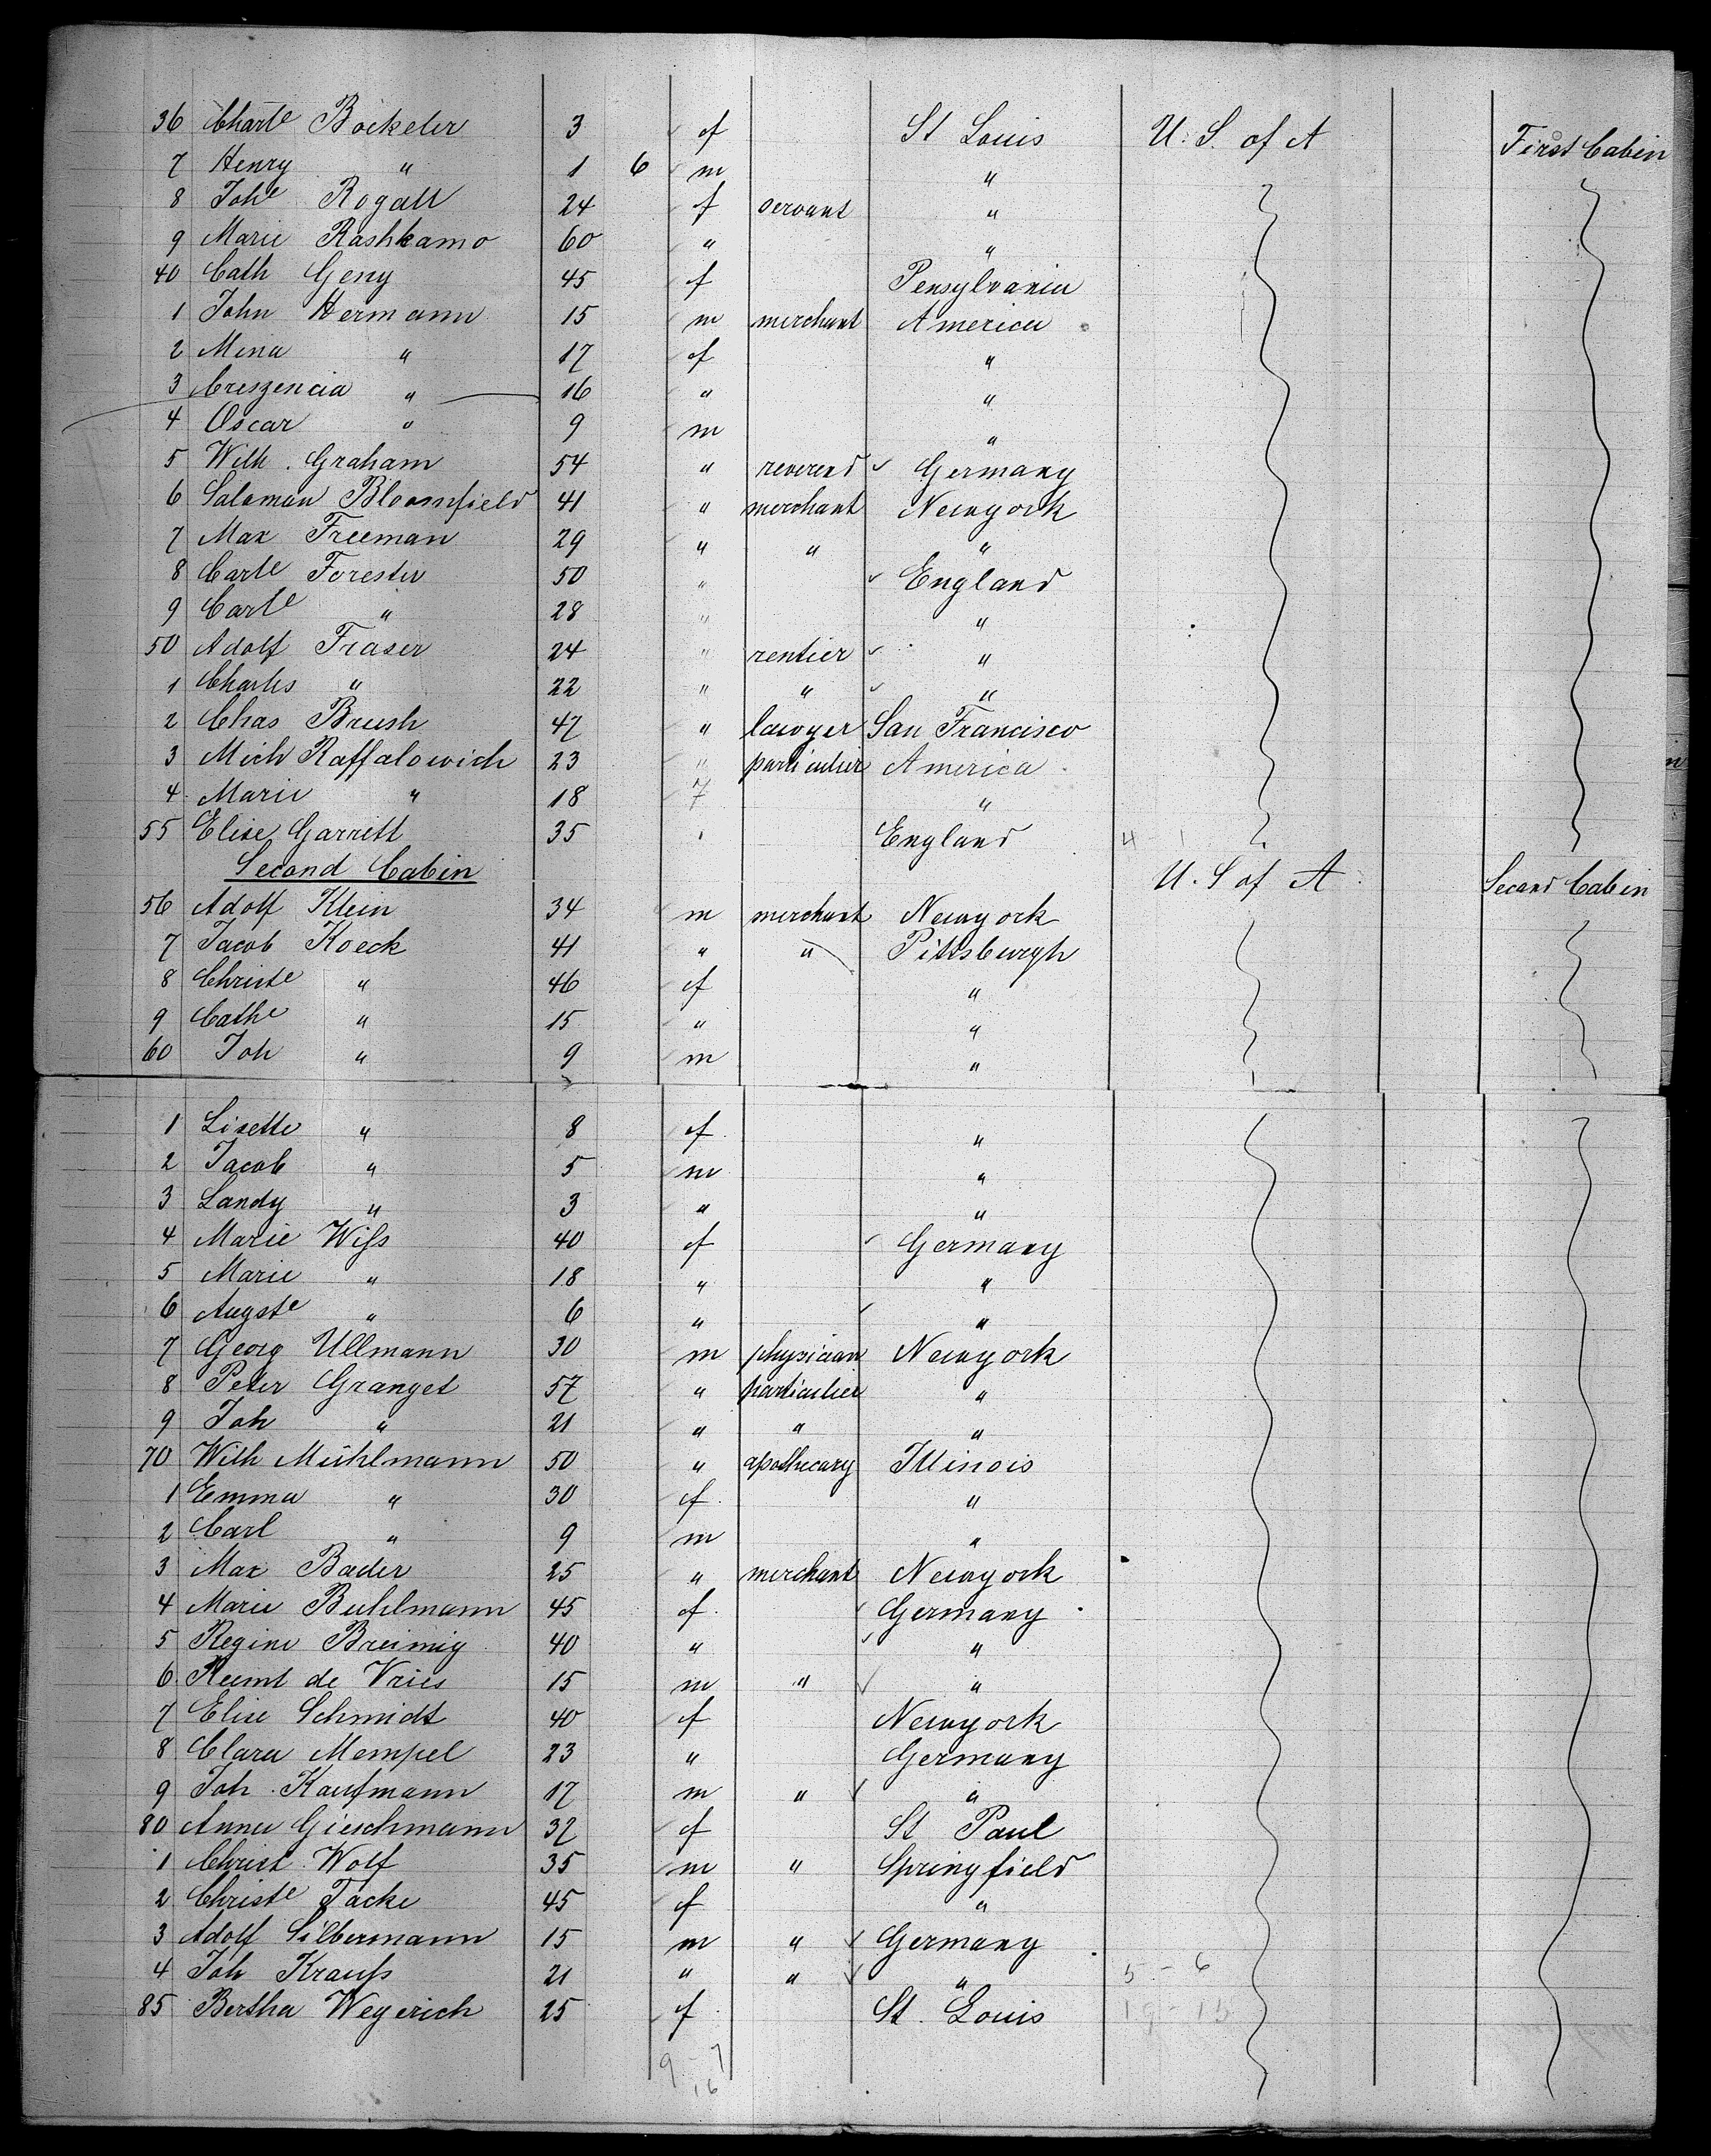 36 Charte Böckeler 3 f St Louis U. S. of A First Cabin
7 Henry " 1 6 m "
8 Johe Rogall 24 f servant "
9 Marie Rashkamo 60 " "
40 Cath Geny 45 f Pensylvania
1 John Hermann 15 m merchant America
2 Mina " 17 f "
3 Creszencia " 16 " "
4 Oscar " 9 m "
5 Wilh. Graham 54 " reverend Germany
6 Saloman Bloomfield 41 " merchant Newyork
7 Max Freeman 29 " " "
8 Carle Forester 50 " England
9 Carle " 28 " "
50 Adolf Fraser 24 " rentier "
1 Charles " 22 " " "
2 Chas Brush 47 " lawyer San Francisco
3 Mich Raffalowich 23 " particulier America
4 Marie " 18 f "
55 Elise Garrett 35 ' England 4 - 1
Second Cabin U. S of A Second Cabin
56 Adolf Klein 34 m merchant Newyork
7 Jacob Koeck 41 " " Pittsburgh
8 Christe " 46 f "
9 Cathe " 15 " "
60 Joh " 9 m "
1 Lisette " 8 f "
2 Jacob " 5 m "
3 Landy " 3 " "
4 Marie Wiſs 40 f Germany
5 Marie " 18 " "
6 Augste " 6 " "
7 Georg Ullmann 30 m physician Newyork
8 Peter Granget 57 " particulier "
9 Joh " 21 " " "
70 Wilh Mühlmann 50 " apothecary Illinois
1 Emma " 30 f "
2 Carl " 9 m "
3 Max Bader 25 " merchant Newyork
4 Marie Buhlmann 45 f Germany
5 Regine Breimig 40 " "
6 Reemt de Vries 15 m " "
7 Elise Schmidt 40 f Newyork
8 Clara Mempel 23 " Germany
9 Joh. Kaufmann 17 m " "
80 Anna Gieschmann 37 f St Paul
1 Christ. Wolf 35 m " Springfield
2 Christe Tacke 45 f "
3 Adolf Silbermann 15 m " Germany
4 Joh Krauſs 21 " " " 5 - 6
85 Bertha Wegerich 25 f St. Louis
9 - 7
16